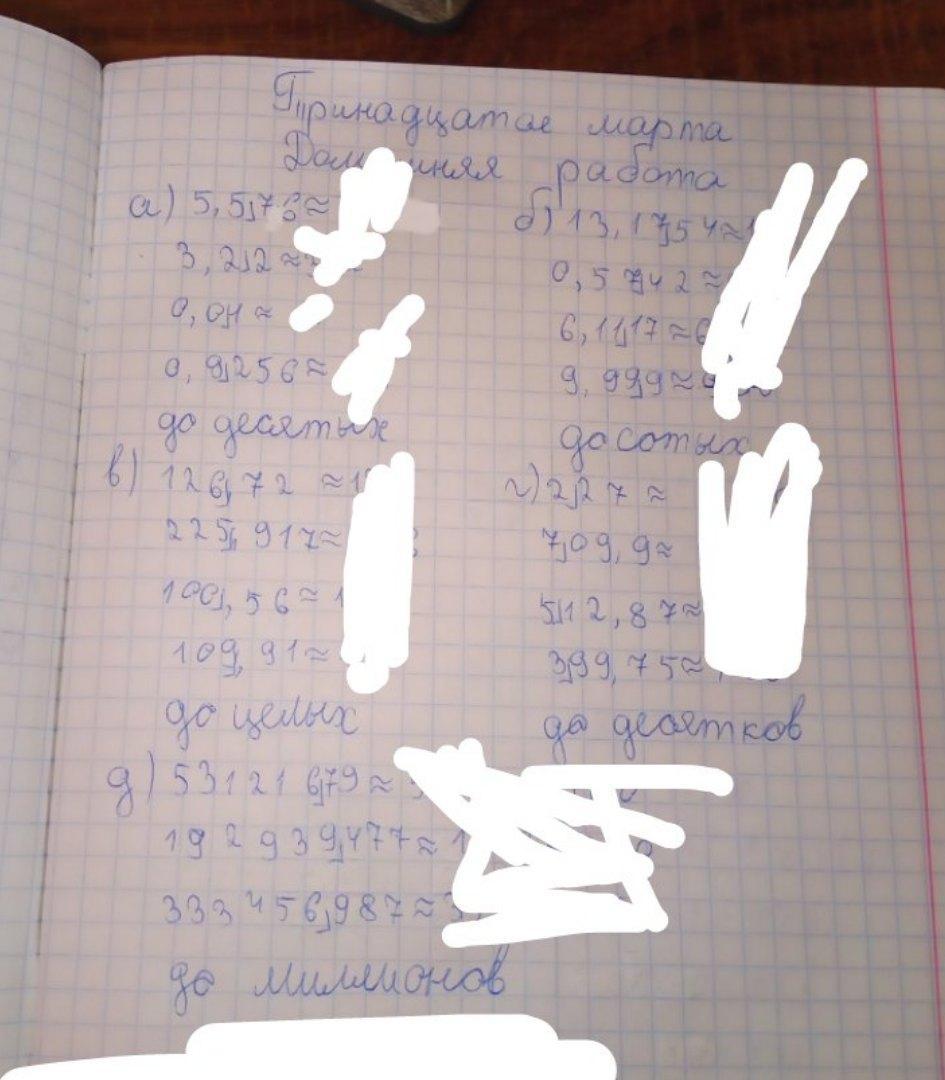 Тринадцатое марта
Домашняя работа
а) 5,576 ≈
3,22 ≈
0,01 ≈
0,9256 ≈
до десятых
б) 13,1754 ≈ 1
0,5742 ≈
6,1117 ≈ 6
9,999 ≈ 9
до сотых
в) 126,72 ≈ 1
225,917 ≈
100,56 ≈ 1
109,91 ≈
до целых
г) 227 ≈
709,9 ≈
512,87 ≈
399,75 ≈
до десятков
д) 53121679 ≈ 5
192939477 ≈ 1
333456987 ≈ 3
до миллионов